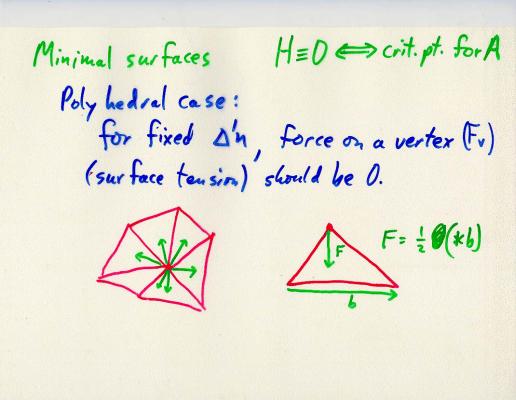 Minimal surfaces
H≡0 ⟺ crit. pt. for A
Polyhedral case:
for fixed Δ'n, force on a vertex (Fv)
(surface tension) should be 0.
F
b
F = ½ (*b)